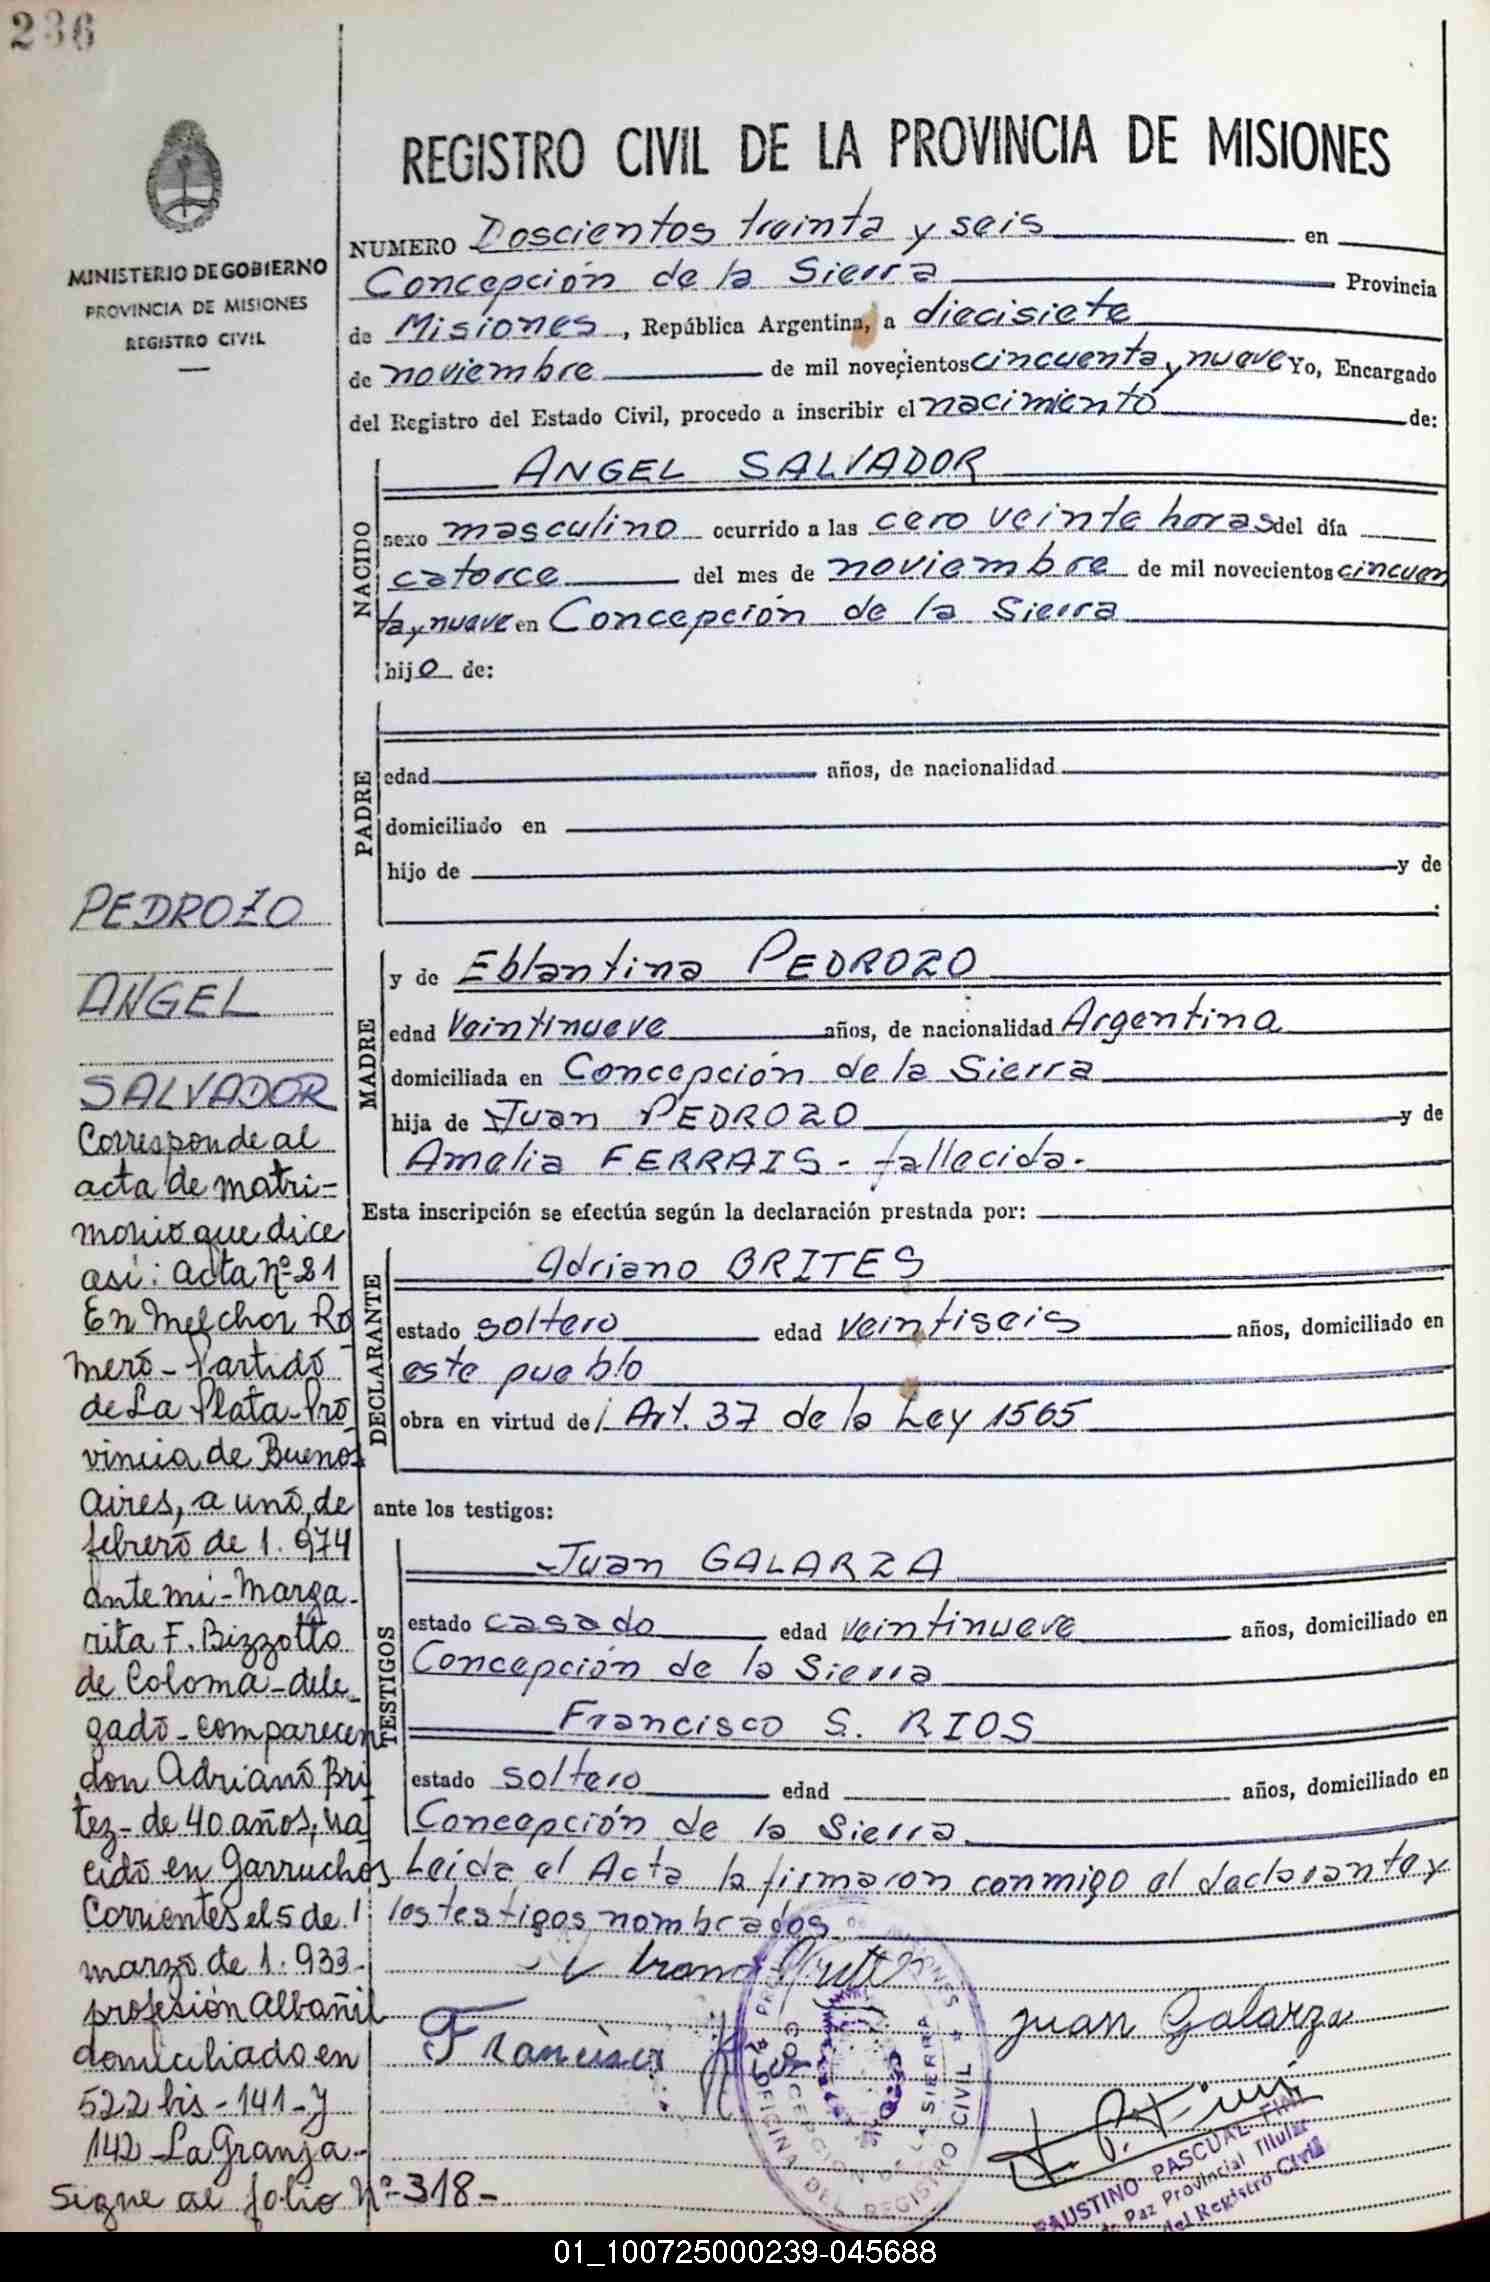 236
MINISTERIO DE GOBIERNO
PROVINCIA DE MISIONES
REGISTRO CIVIL
REGISTRO CIVIL DE LA PROVINCIA DE MISIONES
NUMERO Doscientos treinta y seis en
Concepción de la Sierra Provincia
de Misiones, República Argentina, a diecisiete
de noviembre de mil novecientos cincuenta y nueve Yo, Encargado
del Registro del Estado Civil, procedo a inscribir el nacimiento de:
NACIDO
ANGEL SALVADOR
sexo masculino ocurrido a las cero veinte horas del día
catorce del mes de noviembre de mil novecientos cincuen
ta y nueve en Concepción de la Sierra
hijo de:
PADRE
edad años, de nacionalidad
domiciliado en
hijo de y de
MADRE
y de Eblantina PEDROZO
edad veintinueve años, de nacionalidad Argentina
domiciliada en Concepción de la Sierra
hija de Juan PEDROZO y de
Amelia FERRAIS - fallecida.
Esta inscripción se efectúa según la declaración prestada por:
DECLARANTE
Adriano BRITES
estado soltero edad veintiseis años, domiciliado en
este pueblo
obra en virtud del Art. 37 de la Ley 1565
ante los testigos:
TESTIGOS
Juan GALARZA
estado casado edad veintinueve años, domiciliado en
Concepción de la Sierra
Francisco S. RIOS
estado soltero edad años, domiciliado en
Concepción de la Sierra
Leida el Acta la firmaron conmigo el declarante y
los testigos nombrados
Juan Galarza
Francisco Rios
OFICINA DEL REGISTRO CIVIL
CONCEPCION DE LA SIERRA
FAUSTINO PASCUAL FINI
de Paz Provincial Titular
del Registro Civil
PEDROZO
ANGEL
SALVADOR
Corresponde al
acta de matri-
monio que dice
asi: Acta Nº 21
En Melchor Ro
mero - Partido
de La Plata - Pro
vincia de Buenos
Aires, a uno de
febrero de 1.974
ante mi - Marga-
rita F. Bizzotto
de Coloma - dele
gado - comparecen
don Adriano Bri
tez - de 40 años, na
cido en Garruchos
Corrientes el 5 de
marzo de 1.933 -
profesión Albañil
domiciliado en
522 bis - 141 - y
142 - La Granja -
Sigue al folio Nº 318 -
01_100725000239-045688